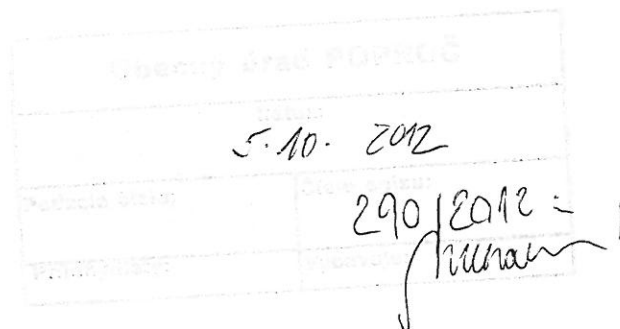 Obecný úrad POPROČ
Dátum:
5.10. 2012
Podacie číslo:
Číslo spisu:
290/2012
Vybavuje: